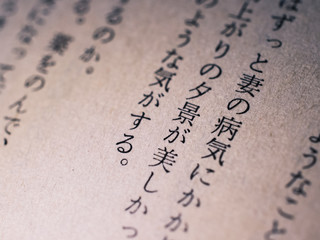 ようなこと
はずっと妻の病気にかか
上がりの夕景が美しかっ
のような気がする。
るのか。
る。薬をのんで、